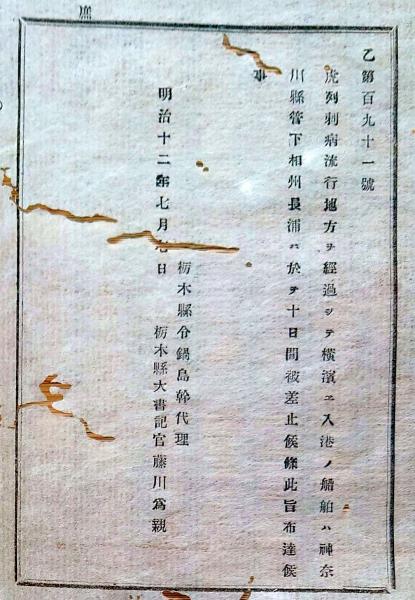 乙第百九十一號
虎列剌病流行地方ヲ經過シテ横濱ヱ入港ノ船舶ハ神奈
川縣管下相州長浦ニ於テ十日間被差止候條此旨布達候
事
明治十二年七月 日
栃木縣令鍋島幹代理
栃木縣大書記官藤川爲親